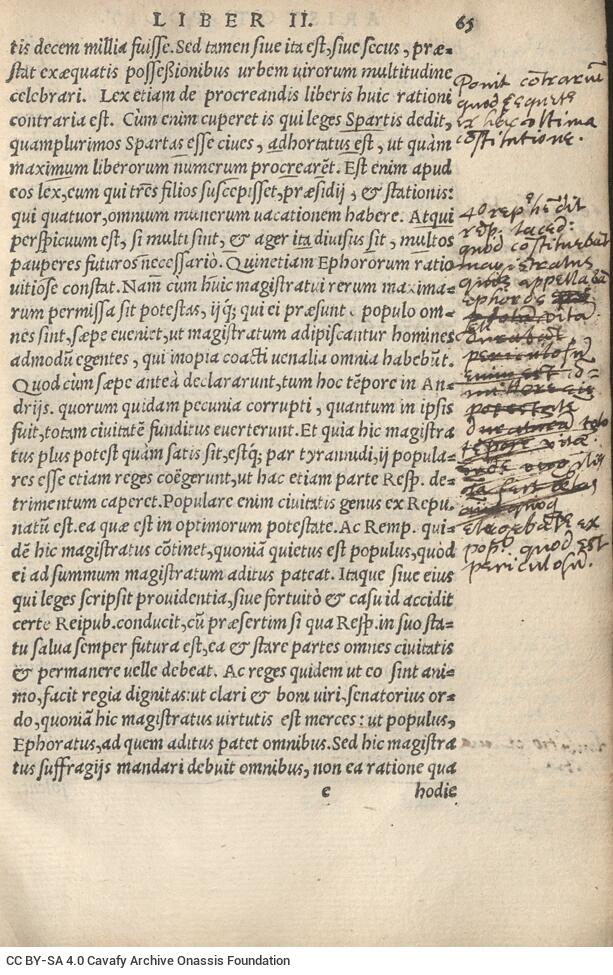 LIBER II. 65
tis decem millia fuisse. Sed tamen siue ita est, siue secus, præ-
stat exæquatis possessionibus urbem uirorum multitudine
celebrari. Lex etiam de procreandis liberis huic rationi
contraria est. Cùm enim cuperet is qui leges Spartis dedit,
quamplurimos Spartas esse ciues, adhortatus est, ut quàm
maximum liberorum numerum procrearēt. Est enim apud
eos lex, eum qui tres filios suscepisset, præsidij, & stationis:
qui quatuor, omnium munerum uacationem habere. Atqui
perspicuum est, si multi sint, & ager ita diuisus sit, multos
pauperes futuros necessariò. Quinetiam Ephororum ratio
uitiose constat. Nam cum huic magistratui rerum maxima-
rum permissa sit potestas, ijq; qui ei præsunt populo om-
nes sint, sæpe euenit, ut magistratum adipiscantur homines
admodũ egentes, qui inopia coacti uenalia omnia habebũt.
Quod cùm sæpe anteà declararunt, tum hoc tēpore in An-
drijs. quorum quidam pecunia corrupti, quantum in ipsis
fuit, totam ciuitatē funditus euerterunt. Et quia hic magistra
tus plus potest quàm satis sit, estq; par tyrannidi, ij popula-
res esse etiam reges coëgerunt, ut hac etiam parte Resp. de-
trimentum caperet. Populare enim ciuitatis genus ex Repu.
natũ est. ea quæ est in optimorum potestate. Ac Remp. qui-
dē hic magistratus cõtinet, quoniã quietus est populus, quòd
ei ad summum magistratum aditus pateat. Itaque siue eius
qui leges scripsit prouidentia, siue fortuitò & casu id accidit
certe Reipub. conducit, cũ præsertim si qua Resp. in suo sta-
tu salua semper futura est, ea & stare partes omnes ciuitatis
& permanere uelle debeat. Ac reges quidem ut eo sint ani-
mo, facit regia dignitas: ut clari & boni uiri, senatorius or-
do, quoniã hic magistratus uirtutis est merces: ut populus,
Ephoratus, ad quem aditus patet omnibus. Sed hic magistra
tus suffragijs mandari debuit omnibus, non ea ratione qua
e hodie
Ponit cõtrariũ
ex hac
cõstitutione.
quod
magistratus
quos appellabãt
ephoros
ex
quod est
periculosũ.
CC BY-SA 4.0 Cavafy Archive Onassis Foundation